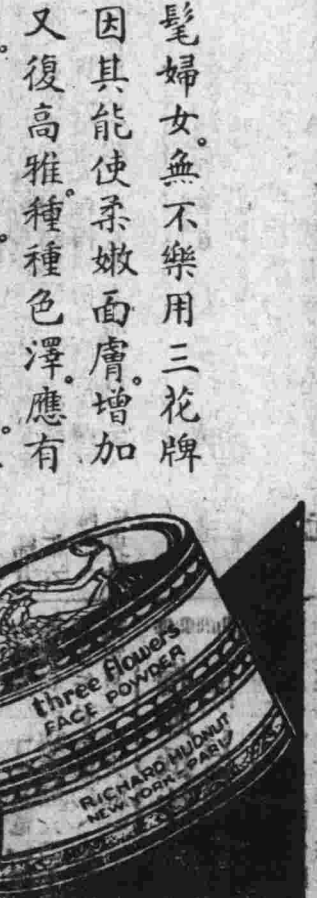 髦婦女。無不樂用三花牌
因其能使柔嫩面膚。增加
又復高雅。種種色澤。應有
three flowers
FACE POWDER
RICHARD HUDNUT
NEW YORK - PARIS